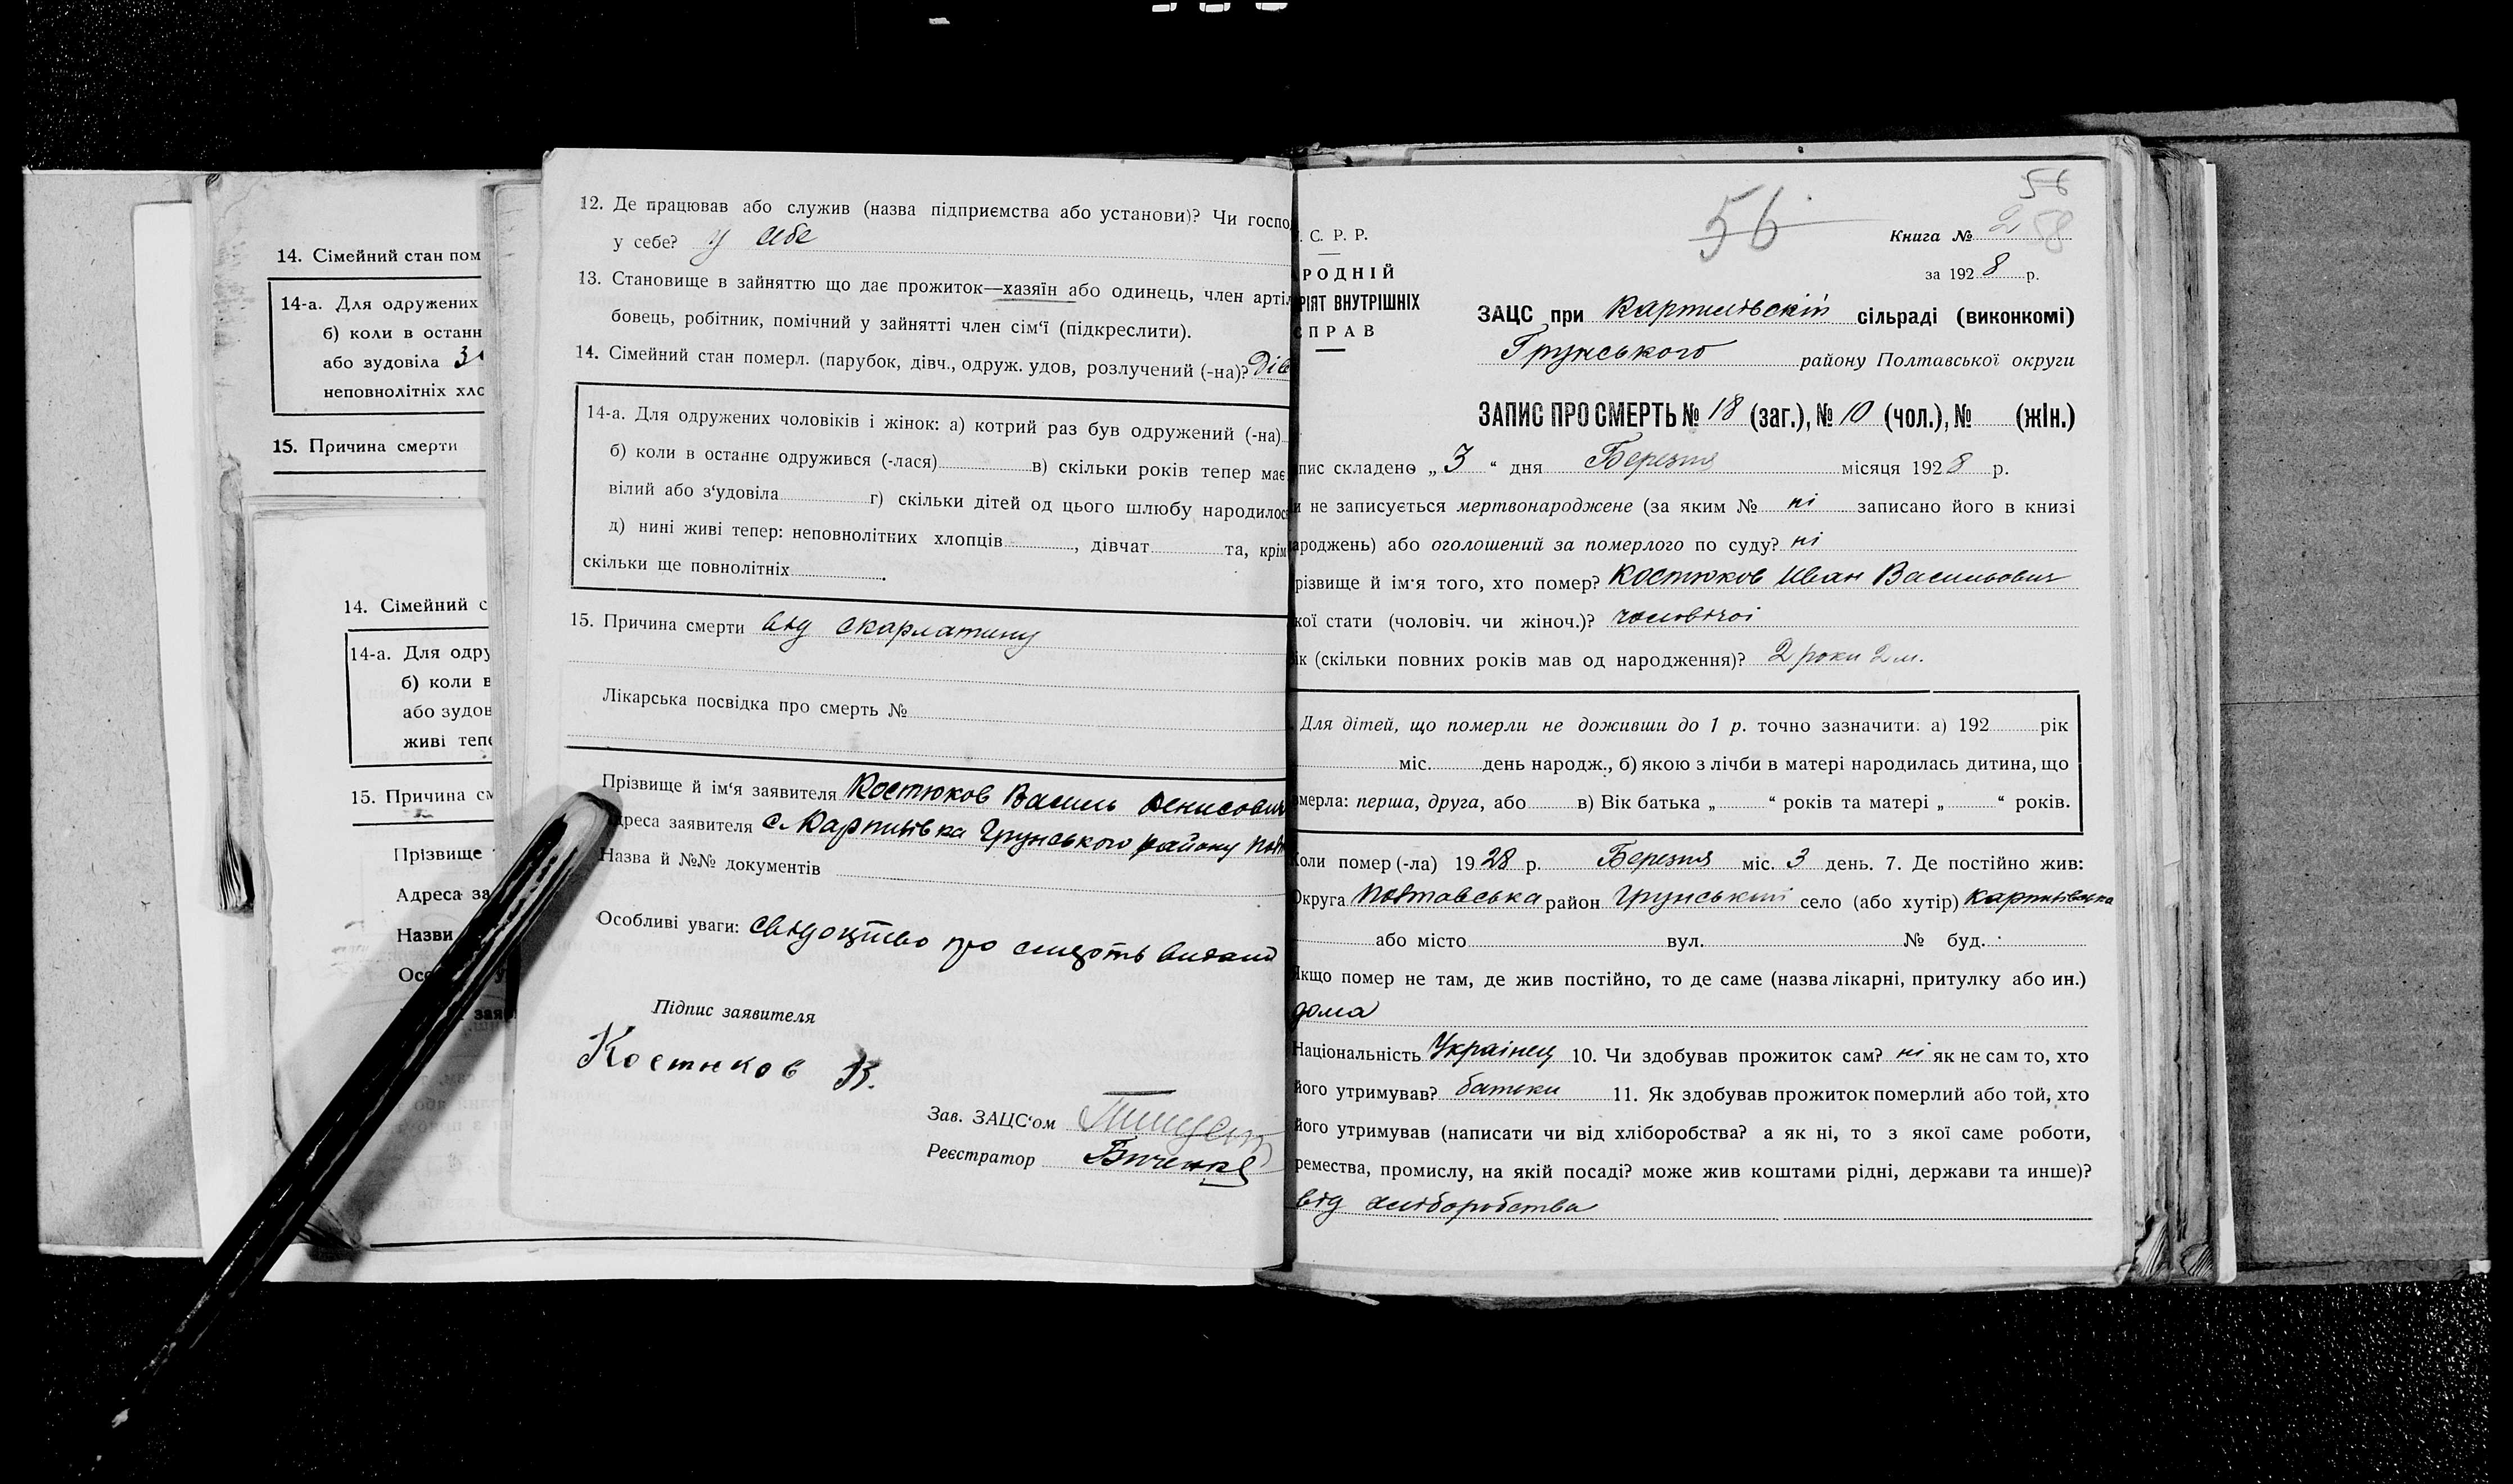 14. Сімейний стан пом
14-а. Для одружених
б) коли в останн
або зудовіла
неповнолітніх хло
15. Причина смерти
14. Сімейний с
14-а. Для одру
б) коли в
або зудов
живі тепе
15. Причина см
Прізвище
Адреса за
Назви
Ос
зая
12. Де працював або служив (назва підприємства або установи)? Чи госпо
у себе? У себе
13. Становище в зайняттю що дає прожиток—хазяїн або одинець, член артіл
бовець, робітник, помічний у зайнятті член сім'ї (підкреслити).
14. Сімейний стан померл. (парубок, дівч., одруж. удов, розлучений (-на)? Дів
14-а. Для одружених чоловіків і жінок: а) котрий раз був одружений (-на)
б) коли в останнє одружився (-лася) в) скільки років тепер має
вілий або з'удовіла г) скільки дітей од цього шлюбу народилос
д) нині живі тепер: неповнолітних хлопців , дівчат та, крім
скільки ще повнолітніх .
15. Причина смерти від скарлатину
Лікарська посвідка про смерть №
Прізвище й ім'я заявителя Костюков Василь Денисович
дреса заявителя с. Карпилівка Грунського району Пол
Назва й №№ документів
Особливі уваги: свідоцтво про смерть видано
Підпис заявителя
Костюков В.
Зав. ЗАЦС'ом
Реєстратор
56
56
258
. С. Р. Р.
РОДНІЙ
РІЯТ ВНУТРІШНІХ
СПРАВ
Книга № 2
за 1928 р.
ЗАЦС при Карпилівскій сільраді (виконкомі)
Грунського району Полтавської округи
ЗАПИС ПРО СМЕРТЬ № 18 (заг.), № 10 (чол.), № (жін.)
пис складено „3“ дня Березня місяця 1928 р.
и не записується мертвонароджене (за яким № ні записано його в книзі
ароджень) або оголошений за померлого по суду? ні
різвище й ім'я того, хто помер? Костюков Иван Васильович
кої стати (чоловіч. чи жіноч.)? чоловічої
ік (скільки повних років мав од народження)? 2 роки 2 м.
Для дітей, що померли не доживши до 1 р. точно зазначити: а) 192 рік
міс. день народж., б) якою з лічби в матері народилась дитина, що
омерла: перша, друга, або в) Вік батька „ “ років та матері „ “ років.
Коли помер (-ла) 1928 р. Березня міс. 3 день. 7. Де постійно жив:
Округа Полтавська район Грунський село (або хутір) Карпилівка
або місто вул. № буд.
Якщо помер не там, де жив постійно, то де саме (назва лікарні, притулку або ин.)
дома
Національність Українец 10. Чи здобував прожиток сам? ні як не сам то, хто
його утримував? батьки 11. Як здобував прожиток померлий або той, хто
його утримував (написати чи від хліборобства? а як ні, то з якої саме роботи,
ремества, промислу, на якій посаді? може жив коштами рідні, держави та инше)?
від хліборобства